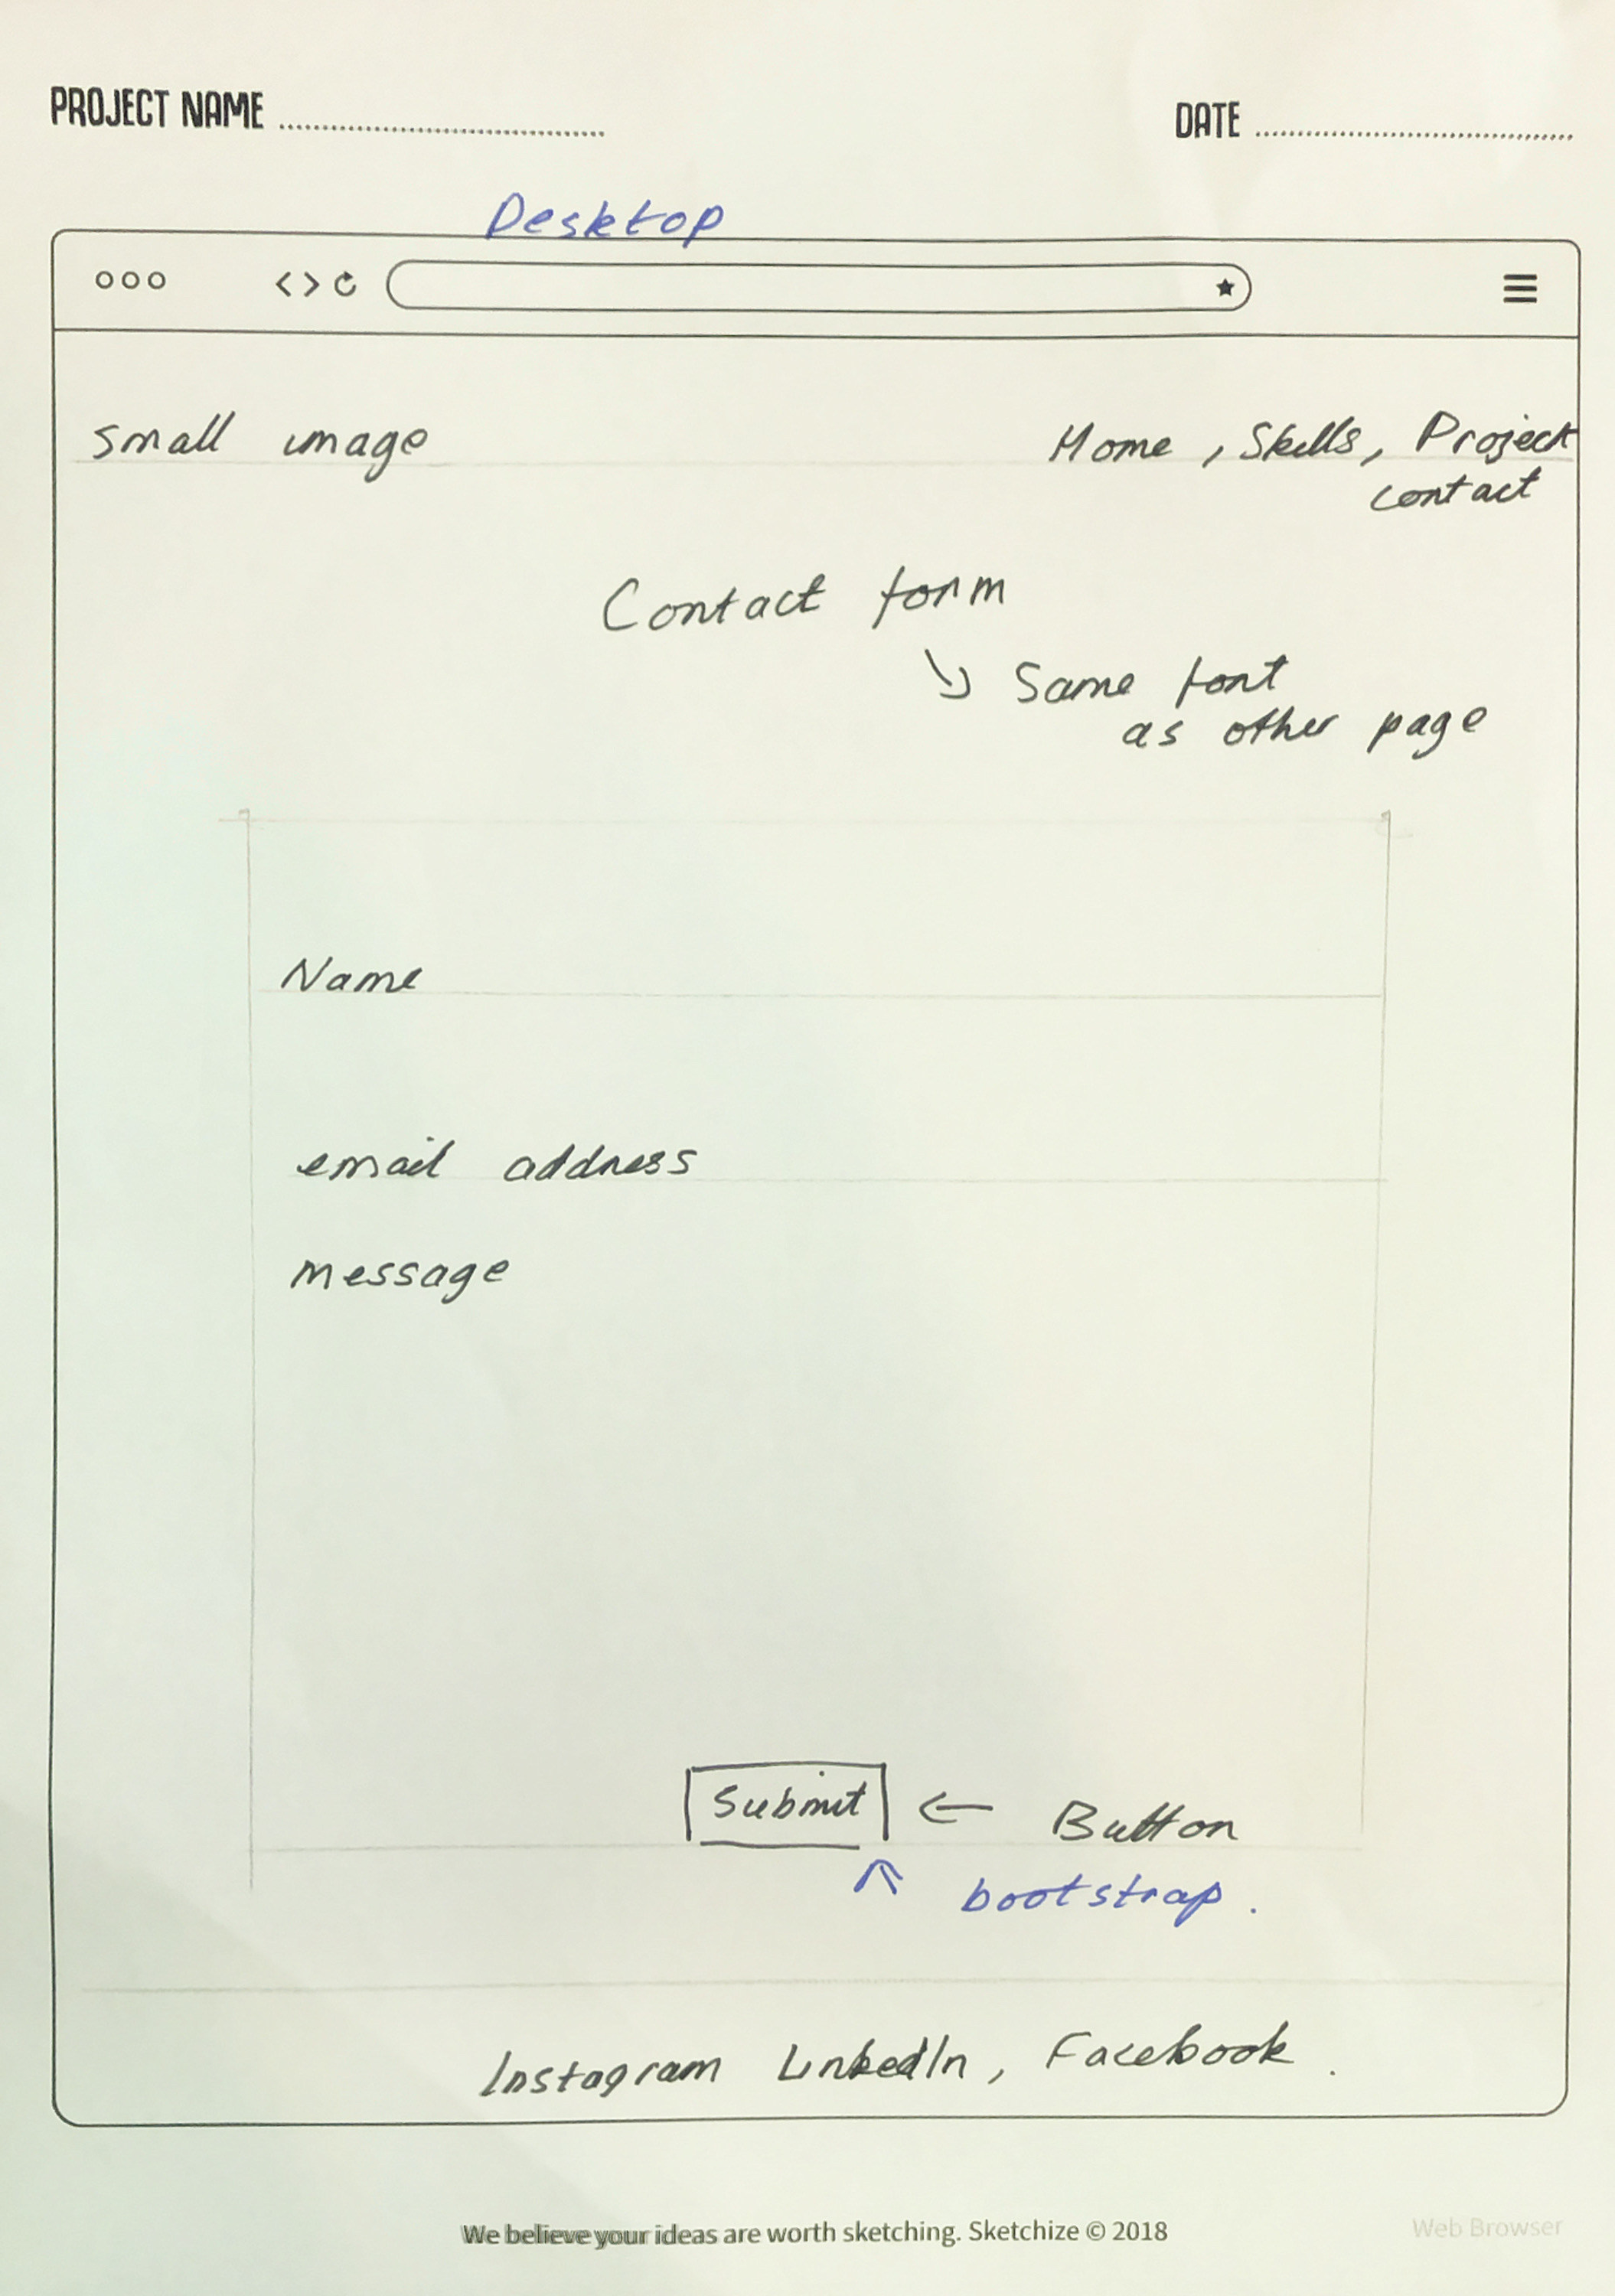 PROJECT NAME
DATE
Desktop
small image
Home, Skills, Project
contact
Contact form
Same font
as other page
Name
email address
message
Submit
Button
bootstrap.
Instagram LinkedIn, Facebook.
We believe your ideas are worth sketching. Sketchize © 2018
Web Browser